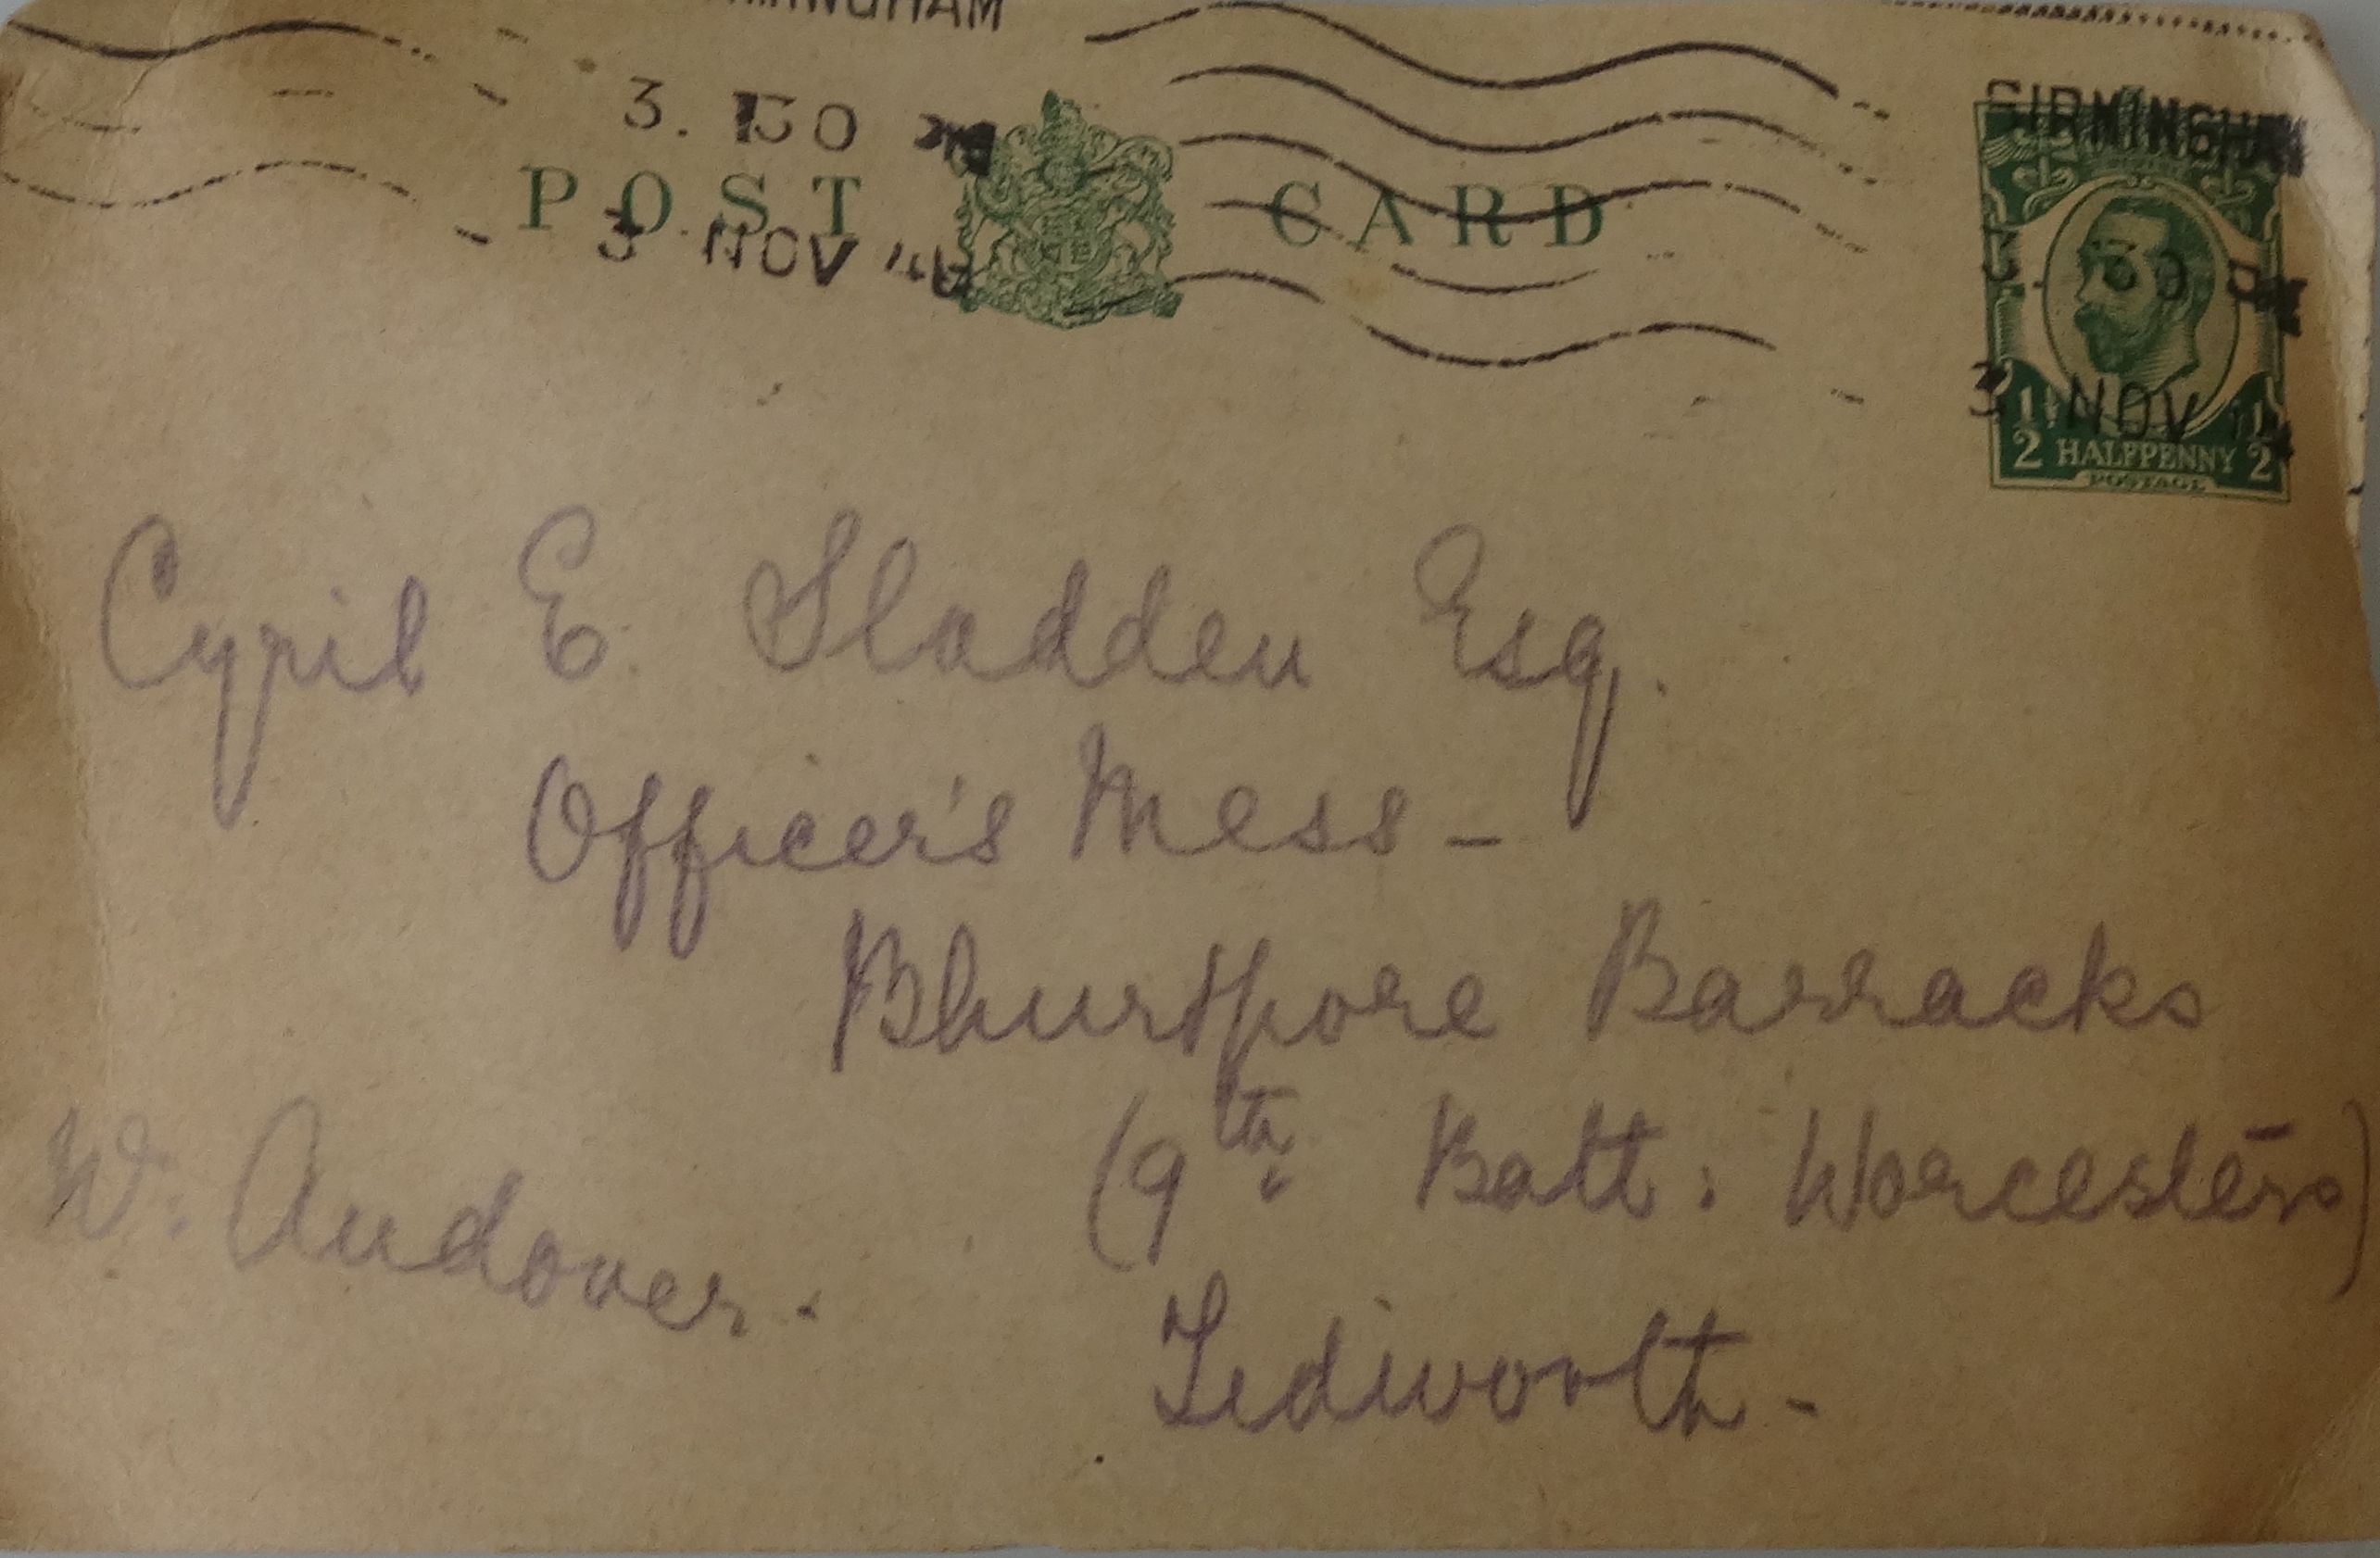 BIRMINGHAM
3. 30 PM
POST CARD
3 NOV 14
BIRMINGHAM
3. 30 PM
3 NOV 14
1/2 HALFPENNY 1/2
POSTAGE
Cyril E. Sladden Esq.
Officer's Mess -
Bhurtpore Barracks
(9th. Batt: Worcesters)
Tidworth -
Nr. Andover.